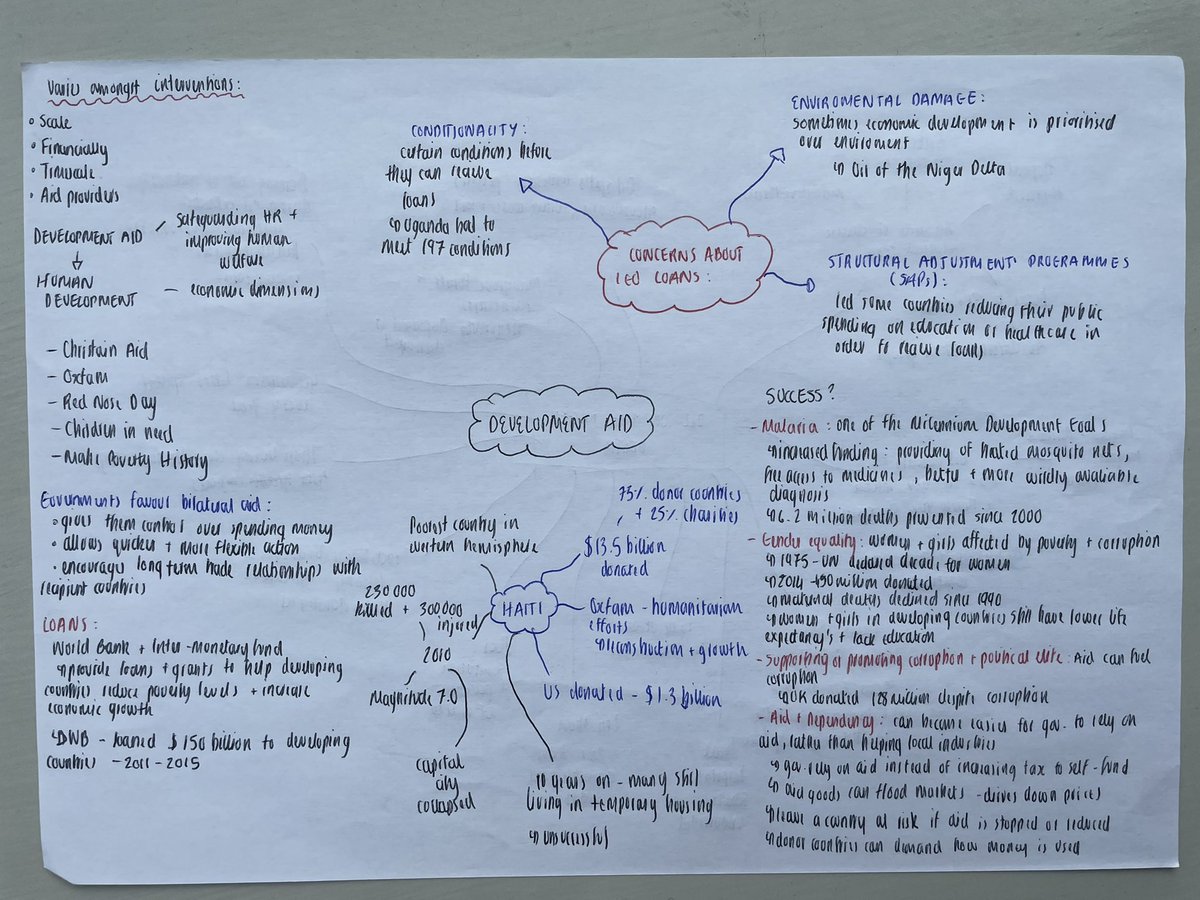 Varies amongst interventions:
• Scale
• Financially
• Timescale
• Aid providers
DEVELOPMENT AID
safeguarding HR +
improving human
welfare
HUMAN
DEVELOPMENT
– economic dimensions
– Christain Aid
– Oxfam
– Red Nose Day
– Children in need
– Make Poverty History
Governments favour bilateral aid:
• gives them control over spending money
• allows quicker + more flexible action
• encourages long term trade relationships with
recipient countries
LOANS:
World Bank + Inter-monetary fund
↳ provide loans + grants to help developing
countries reduce poverty levels + increase
economic growth
↳ WB – loaned $150 billion to developing
countries – 2011 - 2015
CONDITIONALITY:
certain conditions before
they can receive
loans
↳ Uganda had to
meet 197 conditions
CONCERNS ABOUT
LED LOANS:
ENVIROMENTAL DAMAGE:
sometimes economic development is prioritised
over enviroment
↳ Oil of the Niger Delta
STRUCTURAL ADJUSTMENT PROGRAMMES
(SAPs):
led some countries reducing their public
spending on education or healthcare in
order to receive loans
DEVELOPMENT AID
HAITI
Poorest country in
western hemisphere
75% donor countries
+ 25% charities
$13.5 billion
donated
Oxfam – humanitarian
efforts
↳ reconstruction + growth
US donated – $1.3 billion
230 000
killed + 300 000
injured
2010
Magnitude 7.0
capital
city
collapsed
10 years on – many still
living in temporary housing
↳ unsuccessful
SUCCESS?
– Malaria: one of the Millennium Development Goals
↳ increased funding: providing of treated mosquito nets,
free access to medicines, better + more wildly avaliable
diagnosis
↳ 6.2 million deaths prevented since 2000
– Gender equality: women + girls affected by poverty + corruption
↳ 1975 – UN declared decade for women
↳ 2014 – 450 million donated
↳ maternal deaths declined since 1990
↳ women + girls in developing countries still have lower life
expectancy's + lack education
– Supporting or promoting corruption + political elite: Aid can fuel
corruption
↳ UK donated 128 million despite corruption
– Aid + Dependency: can become easier for gov. to rely on
aid, rather than helping local industries
↳ gov. rely on aid instead of increasing tax to self-fund
↳ aid goods can flood markets – drives down prices
↳ leave a country at risk if aid is stopped or reduced
↳ donor countries can demand how money is used